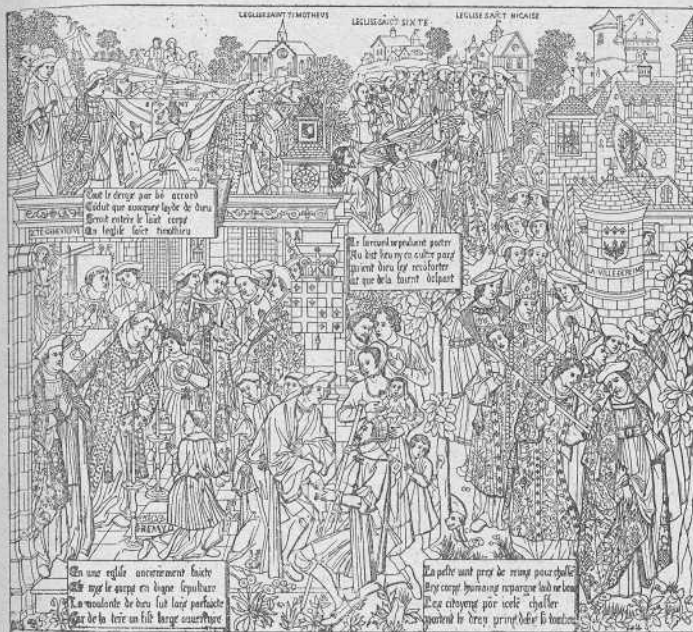 LEGLISE SAINT TIMOTHEVS
LEGLISE SAICT SIXTE
LEGLISE SAICT NICAISE
Tout le clerge par bõ accord
que avecques layde de dieu
Seroit enterre le saint corps
En leglise saict timothieu
STE GENEVIEVE
Le sarcueil ne peuvent porter
Au dit lieu ny en aultre part
dieu les reconforter
que de la feurent despart
LA VILLE DE REIMS
REMY
En une eglise anciennement faicte
mys le corps en digne sepulture
La voulonte de dieu fut lors parfaicte
Car de la tere un fist large ouverture
La peste vint pres de reims pour chasse
corps humains nespargne laid ne beau
Les citoyens por icelle chasser
portent le drap prins dessus le tombeau